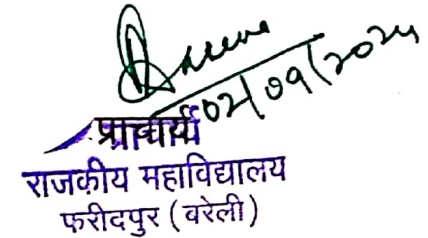 02/09/2024
प्राचार्या
राजकीय महाविद्यालय
फरीदपुर (बरेली)